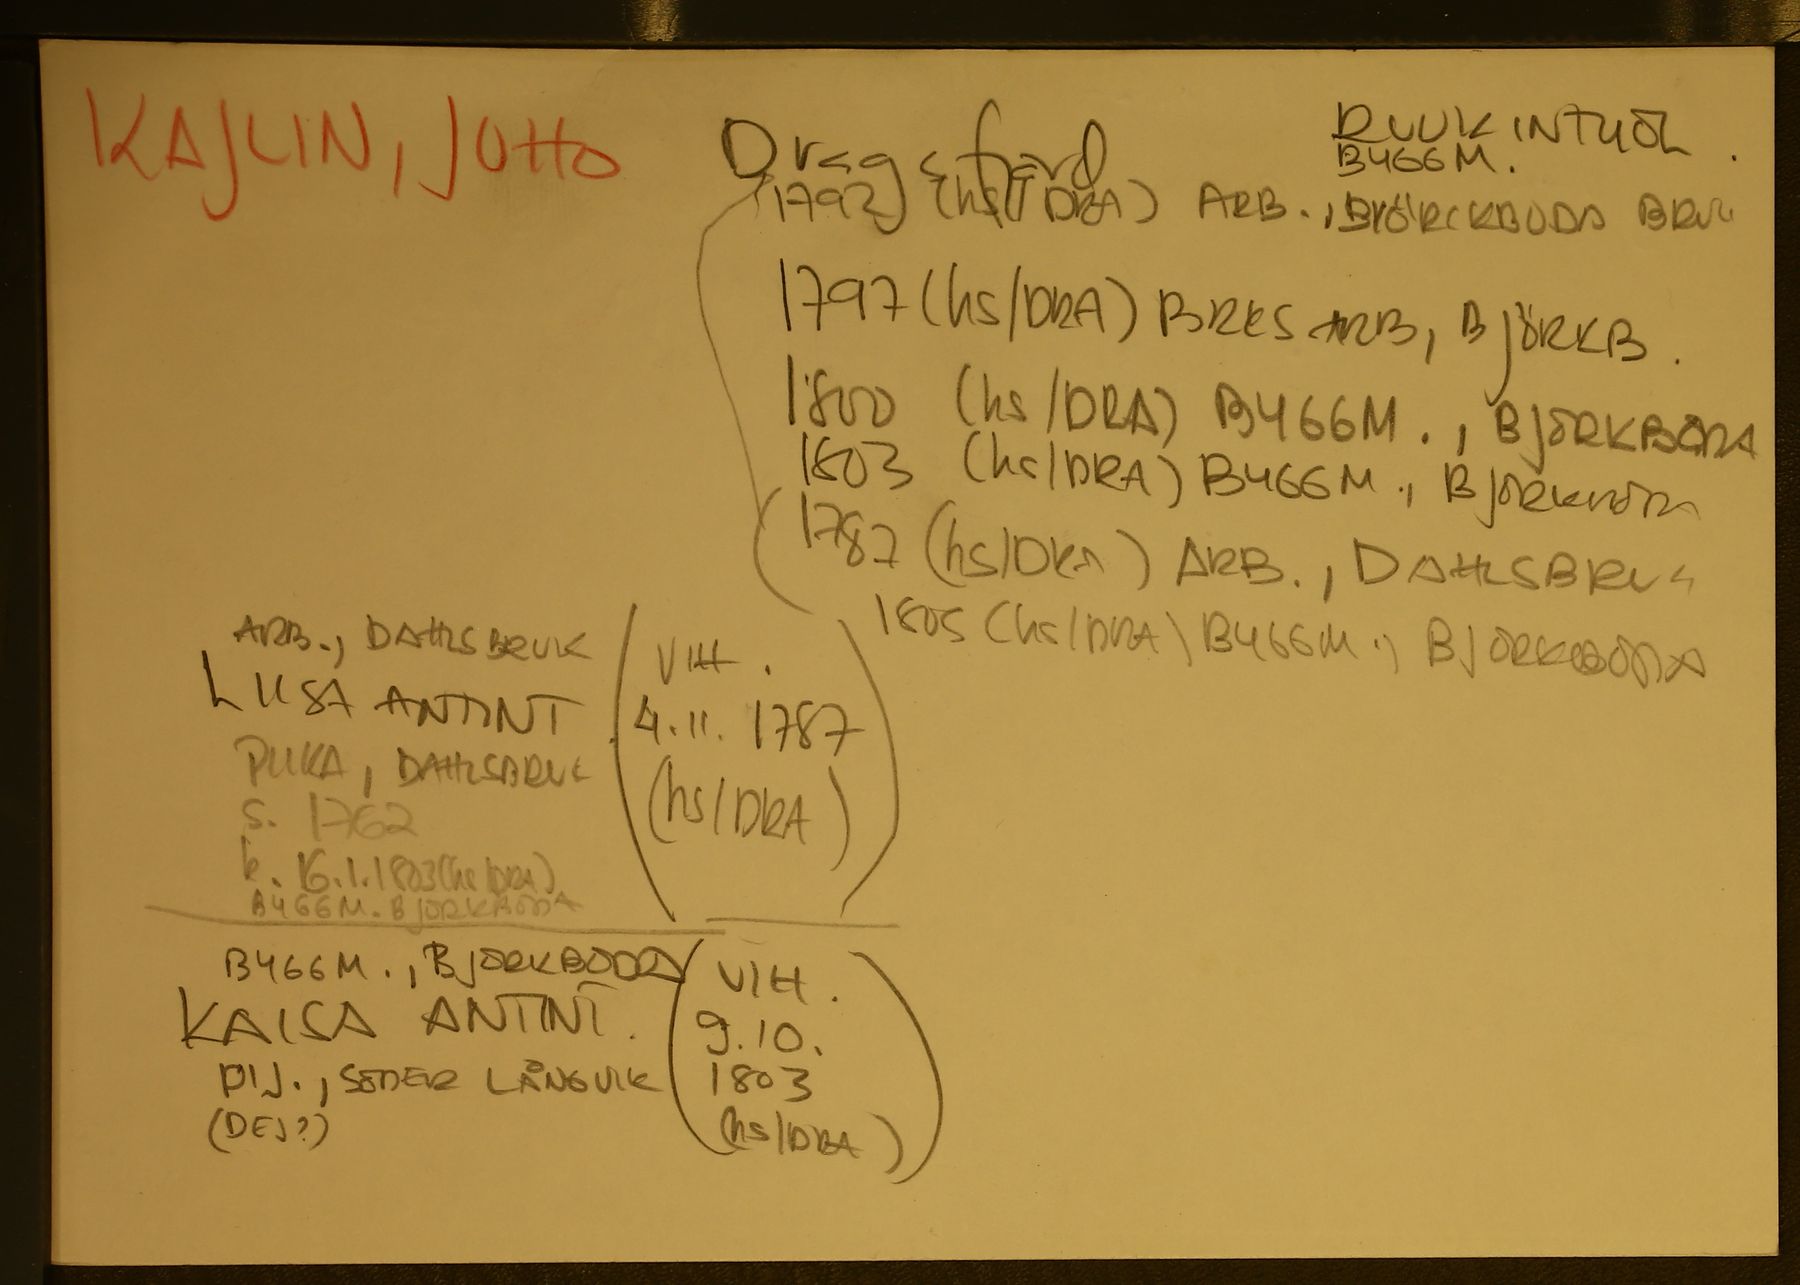 KAJLIN, JUHO
Dragsfjärd
RUUKINTYÖL.
BYGGM.
1792 (hs/DRA) ARB., BJÖRCKBODA BRUK
1797 (hs/DRA) BRKS ARB, BJÖRKB.
1800 (hs/DRA) BYGGM., BJÖRKBODA
1803 (hs/DRA) BYGGM., BJÖRKBODA
1787 (hs/DRA) ARB., DAHLSBRUK
1805 (hs/DRA) BYGGM., BJÖRKBODA
ARB., DAHLSBRUK
LIISA ANTINT
PIIKA, DAHLSBRUK
S. 1762
k. 16.1.1803 (hs/DRA)
BYGGM. BJÖRKBODA
(VIH.
4.11.1787
(hs/DRA))
BYGGM., BJÖRKBODA
KAISA ANTINT.
PIJ., SÖDER LÅNGVIK
(DEJ?)
(VIH.
9.10.
1803
(hs/DRA))